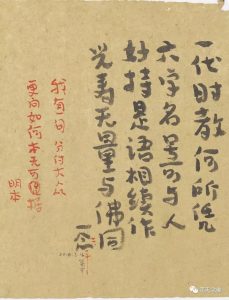 一代时教何所
六字名号可与人
妙持是语相续作
光寿无量与佛同
一念
我有一句 分付大众
更问如何 本无可据
明本